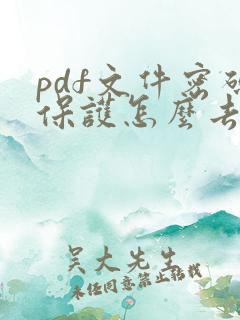 pdf文件密码
保護怎麼去
吴大先生
未经同意禁止转载